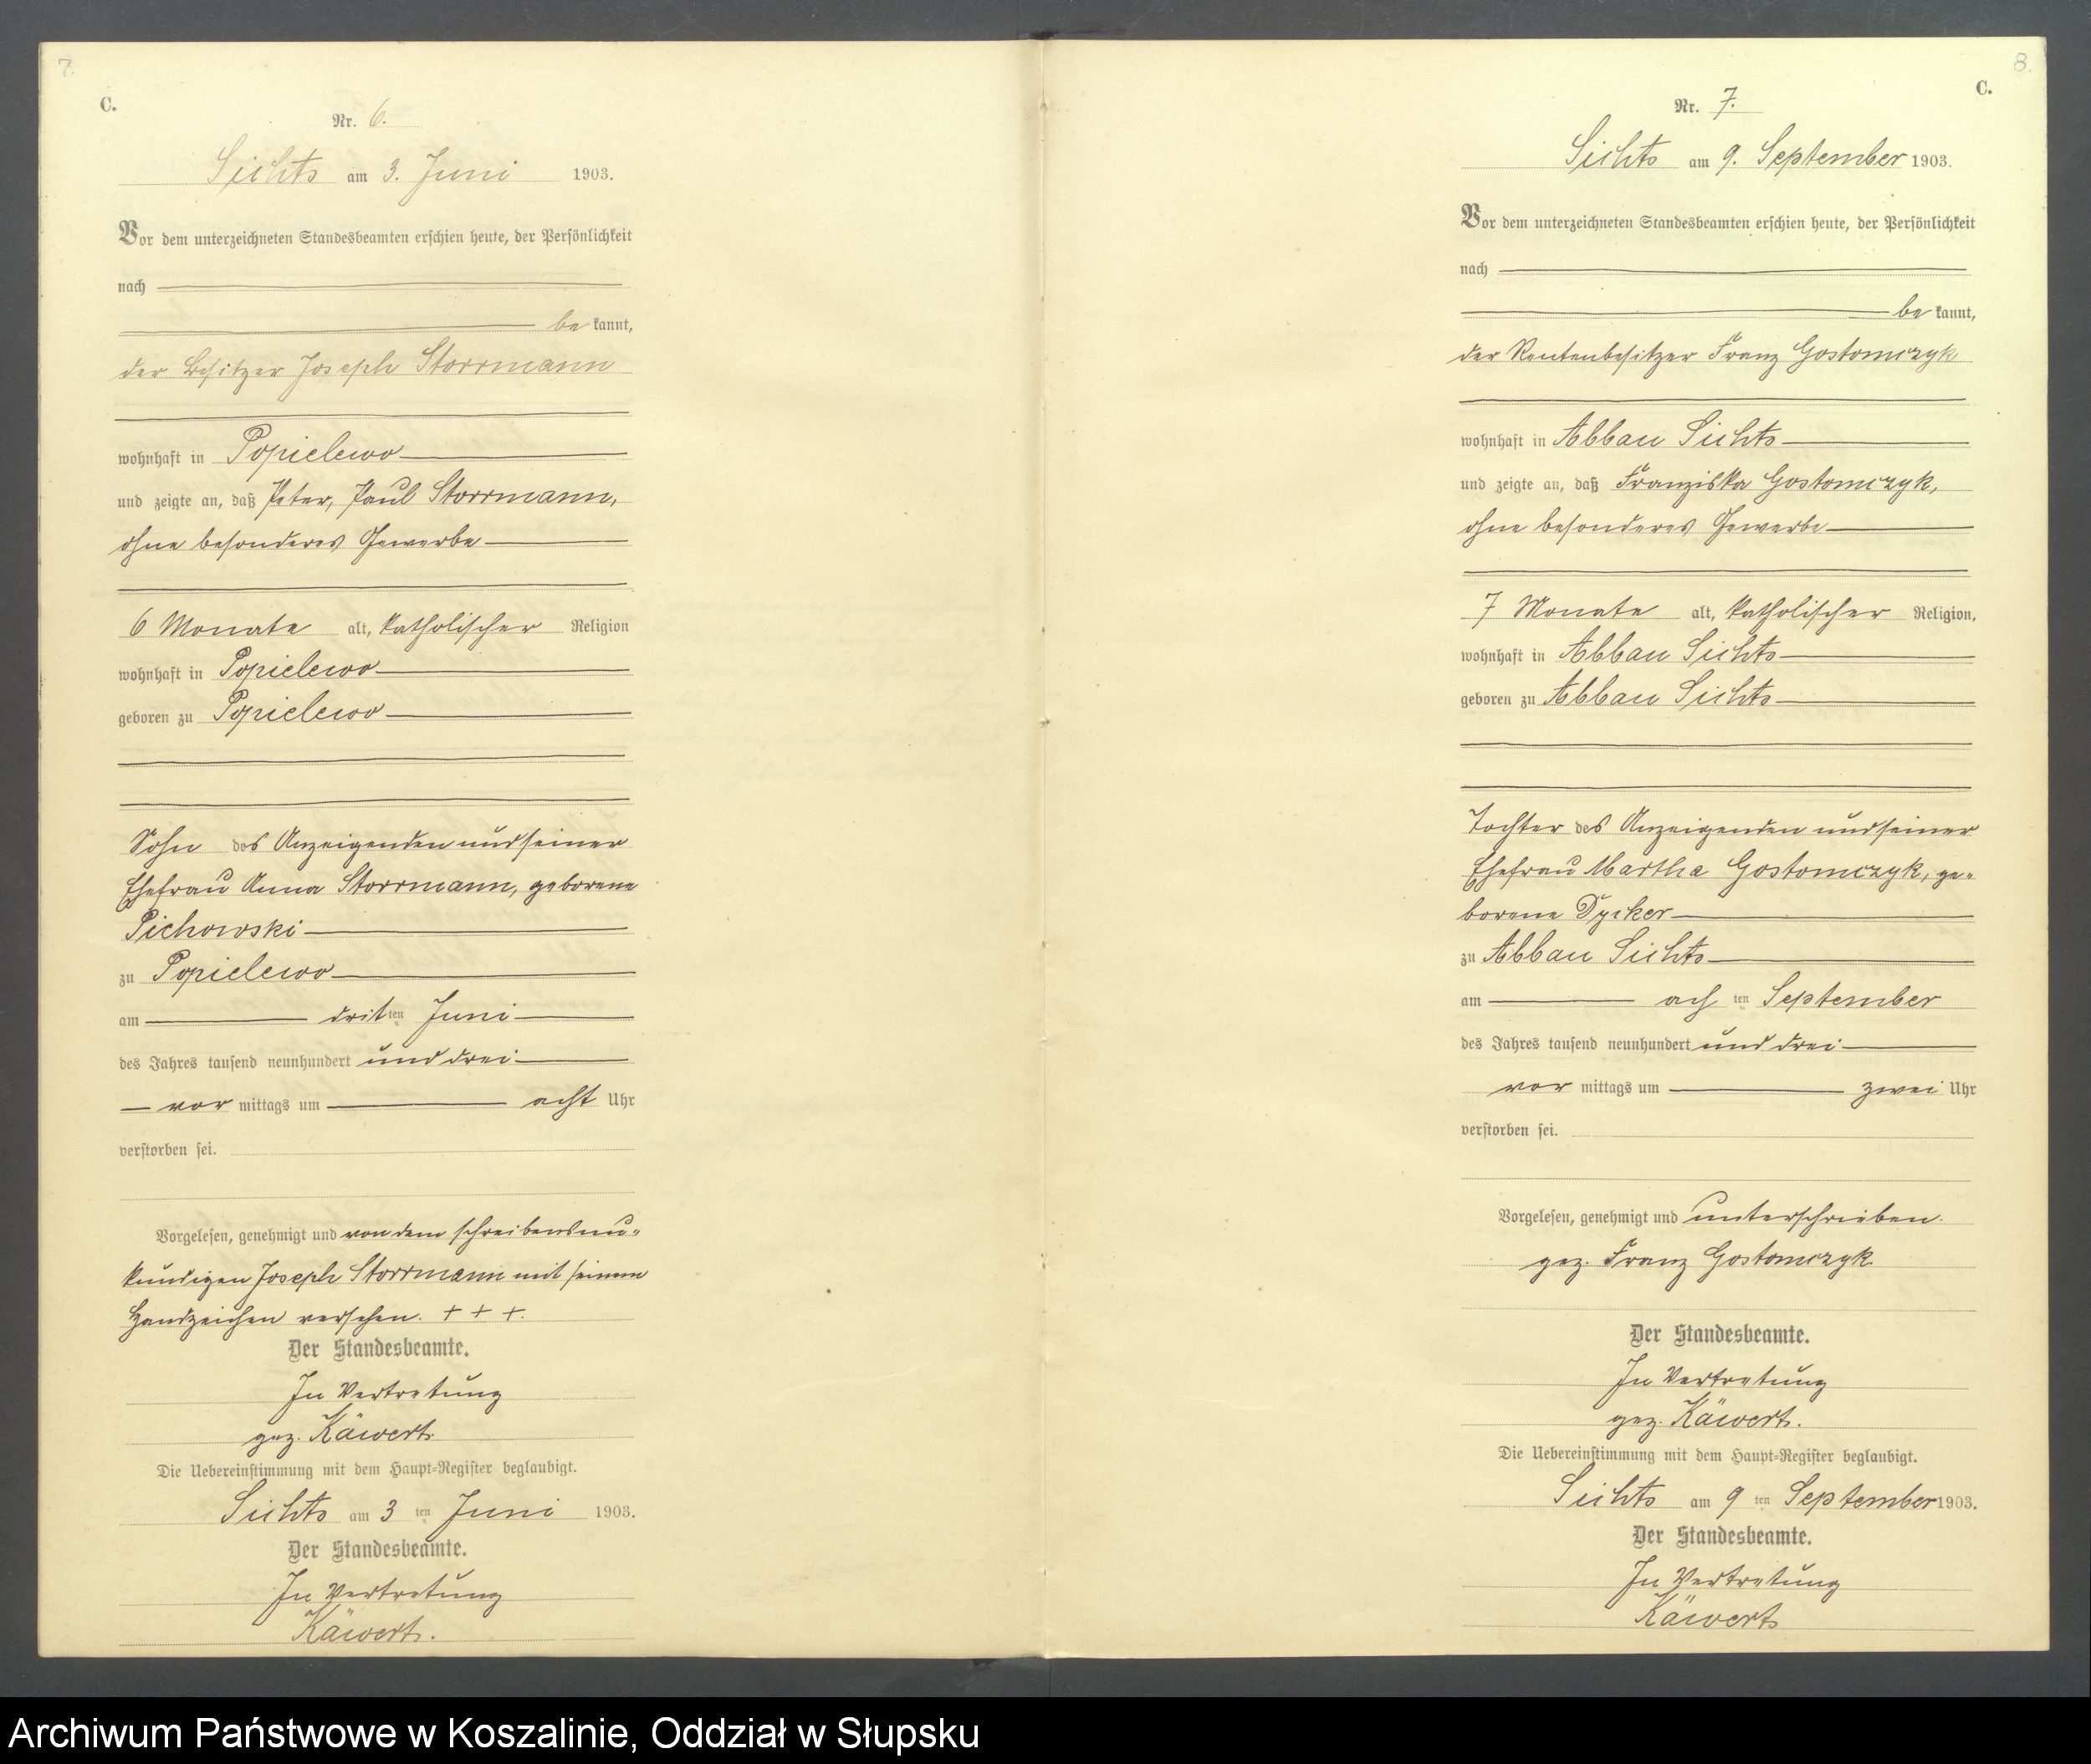 7.
C.
Nr. 6.
Sichts am 3. Juni 1903.
Vor dem unterzeichneten Standesbeamten erschien heute, der Persönlichkeit
nach
be kannt,
der Besitzer Joseph Storrmann
wohnhaft in Popielewo
und zeigte an, daß Peter, Paul Storrmann,
ohne besonderes Gewerbe
6 Monate alt, katholischer Religion
wohnhaft in Popielewo
geboren zu Popielewo
Sohn des Anzeigenden und seiner
Ehefrau Anna Storrmann, geborene
Pichowski
zu Popielewo
am drit ten Juni
des Jahres tausend neunhundert und drei
vor mittags um acht Uhr
verstorben sei.
Vorgelesen, genehmigt und von dem schreibensun-
kundigen Joseph Storrmann mit seinem
Handzeichen versehen. + + +.
Der Standesbeamte.
In Vertretung
gez. Käwert.
Die Uebereinstimmung mit dem Haupt-Register beglaubigt.
Sichts am 3 ten Juni 1903.
Der Standesbeamte.
In Vertretung
Käwert.
8.
C.
Nr. 7.
Sichts am 9. September 1903.
Vor dem unterzeichneten Standesbeamten erschien heute, der Persönlichkeit
nach
be kannt,
der Rentenbesitzer Franz Gostomczyk
wohnhaft in Abbau Sichts
und zeigte an, daß Franziska Gostomczyk,
ohne besonderes Gewerbe
7 Monate alt, katholischer Religion,
wohnhaft in Abbau Sichts
geboren zu Abbau Sichts
Tochter des Anzeigenden und seiner
Ehefrau Martha Gostomczyk, ge-
borene Dycker
zu Abbau Sichts
am ach ten September
des Jahres tausend neunhundert und drei
vor mittags um zwei Uhr
verstorben sei.
Vorgelesen, genehmigt und unterschrieben.
gez. Franz Gostomczyk.
Der Standesbeamte.
In Vertretung
gez. Käwert.
Die Uebereinstimmung mit dem Haupt-Register beglaubigt.
Sichts am 9 ten September 1903.
Der Standesbeamte.
In Vertretung
Käwert
Archiwum Państwowe w Koszalinie, Oddział w Słupsku